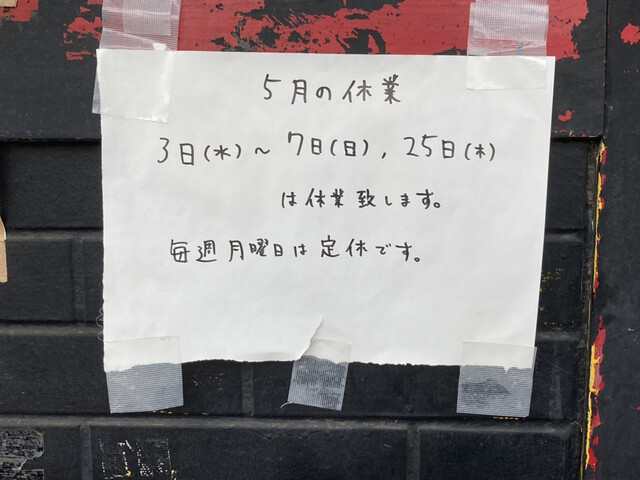 5月の休業
3日(水)~7日(日),25日(木)
は休業致します。
毎週月曜日は定休です。